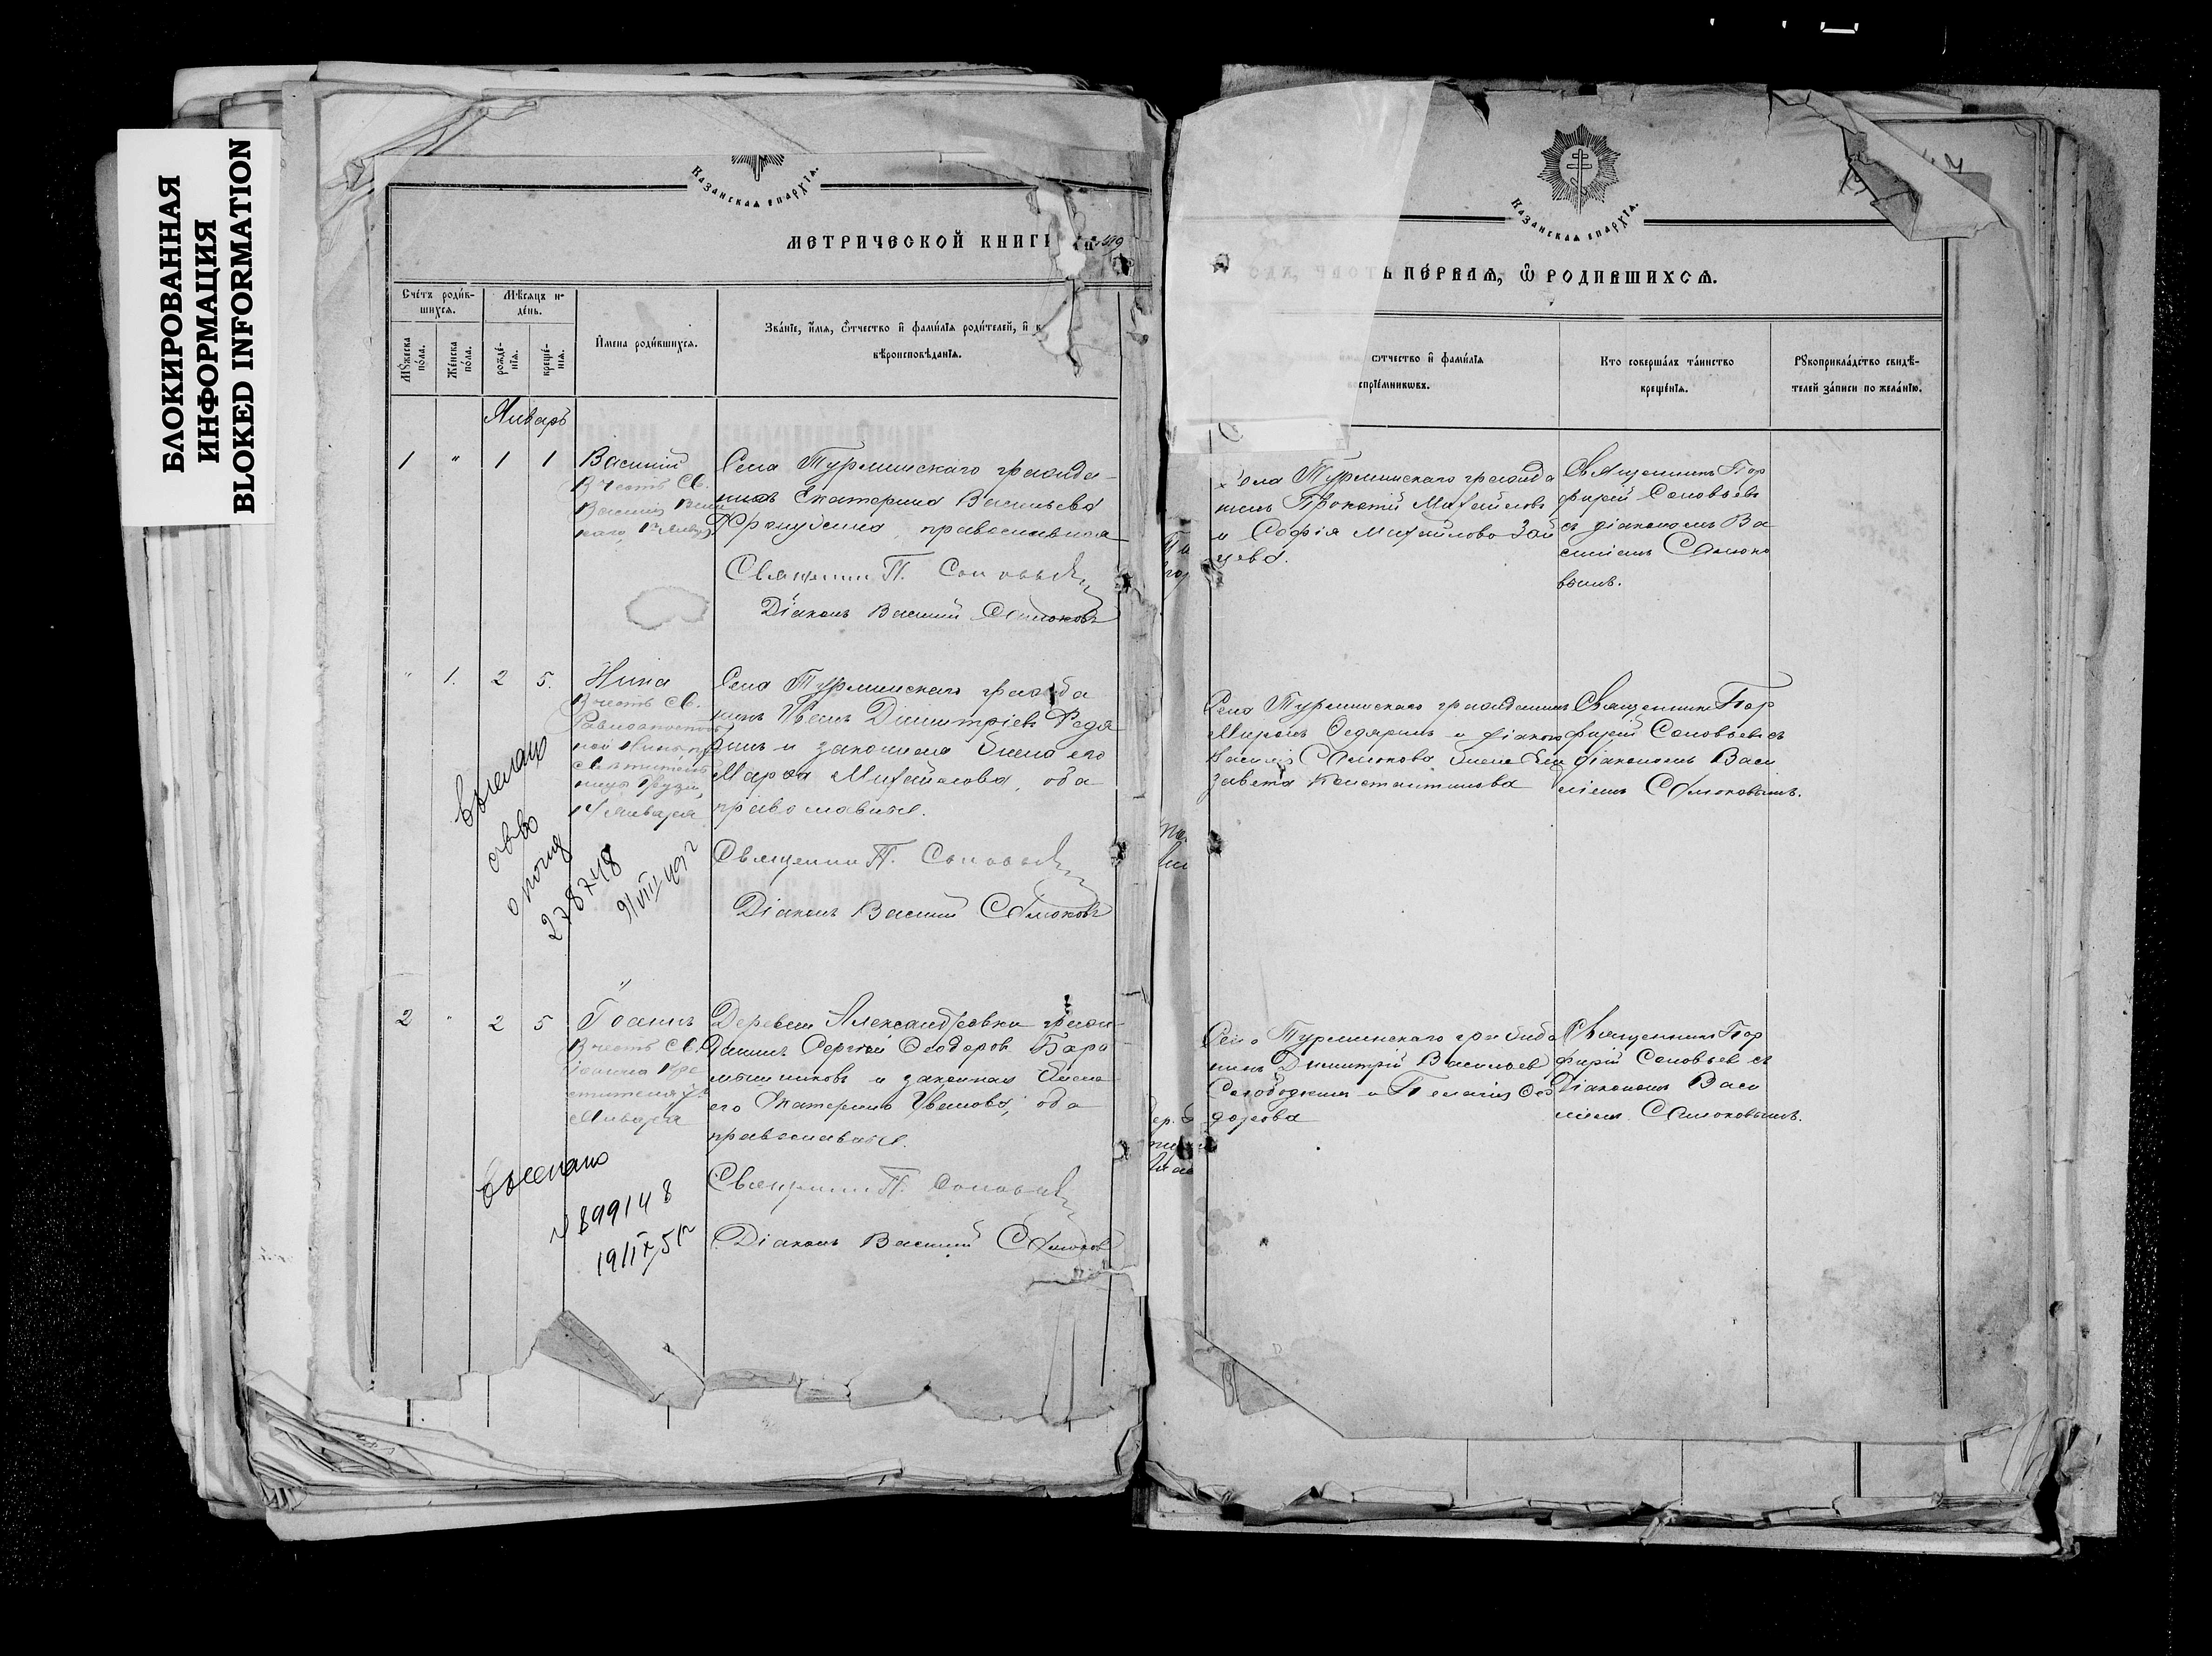 БЛОКИРОВАННАЯ
ИНФОРМАЦИЯ
BLOKED INFORMATION
Казанская епархія.
МЕТРИЧЕСКОЙ КНИГИ
Счетъ родив-
шихся.
Мѣсяцъ и
день.
Мужеска
пола.
Женска
пола.
рожде-
нія.
креще-
нія.
Имена родившихся.
Званіе, имя, отчество и фамилія родителей, и к
вѣроисповѣданія.
Январь
1 " 1 1
Василій
В честь Св.
Василія Вели
каго 1го Янв.
Села Турминскаго гражда-
Екатерина Васильева
православная
Священник П. Соловьев
Діаконъ Василій
" 1. 2 5.
Нина
В честь Св.
Равноапостоль
ной Нины пр
свѣтитель
ницы Грузіи,
14 января
Села Турминскаго гражда
нинъ Іванъ Димитріевъ Федя
ринъ и законная жена его
Марѳа Михайлова, оба
православные.
Священник П. Соловьев
Діаконъ Василій
выслано
278748
9/VIII 49 г
2 " 2 5
Іоаннъ
В честь Св.
Іоанна Кре
стителя 7го
Января
Деревни Александровки граж-
данинъ Сергѣй Ѳеодоровъ Бара
мошниковъ и законная жена
его Екатерина Іванова, оба
православные.
Священник П. Соловьев
Діаконъ Василій
выслано
№ 899148
19/IX 51 г
Казанская епархія.
ПЕРВАЯ, Ѡ РОДИВШИХСЯ.
отчество и фамилія
спріемниковъ.
Кто совершалъ таинство
крещенія.
Рукоприкладство свидѣ-
телей записи по желанію.
Села Турминскаго гражда
нинъ Прокопій Михайловъ
и Софія Михайлова Зай
цева.
Священникъ Пор
фирій Соловьевъ
съ діакономъ Ва
силіемъ
Села Турминскаго гражданинъ
Миронъ Федяринъ и діакона
Василія жена Ели
завета Константинова
Священникъ Пор
фирій Соловьевъ съ
діакономъ Васи
ліемъ
Села Турминскаго гражда
нинъ Димитрій Васильев
и Пелагія Ѳео
дорова
Священникъ Пор
фирій Соловьев съ
Діакономъ Васи
ліемъ